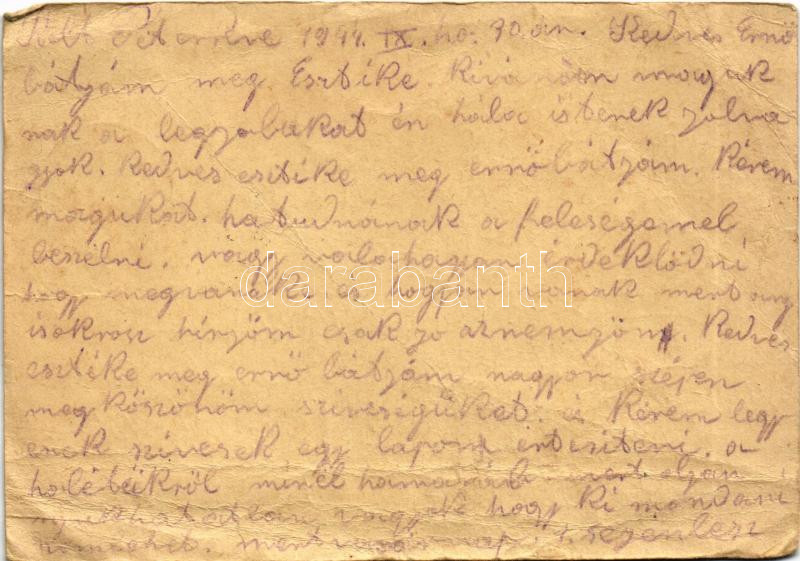 Kelt Péterréve 1944. IX. hó. 30án. Kedves Ernő
bátyám meg Esztike. Kívánom maguk
nak a legjobakat én hála istenek jolva
gyok. Kedves esztike meg ernőbátyám. Kérem
magukat. ha tudnának a feleségemel
beszélni. vagy valahogyan érdeklődni
hogy megvan é ki és hogyan vanak mert
isokrosz hírjöm csak jo aznemjön. Kedves
esztéke meg ernő bátyám nagyon szépen
megköszönöm szívességüket. és Kérem legy
enek szívesek egy lapon értesíteni. a
holébéikről minél hamaráb. mert olyan
vagyok hogy ki mondani
nemlehet. mert
darabanth.com